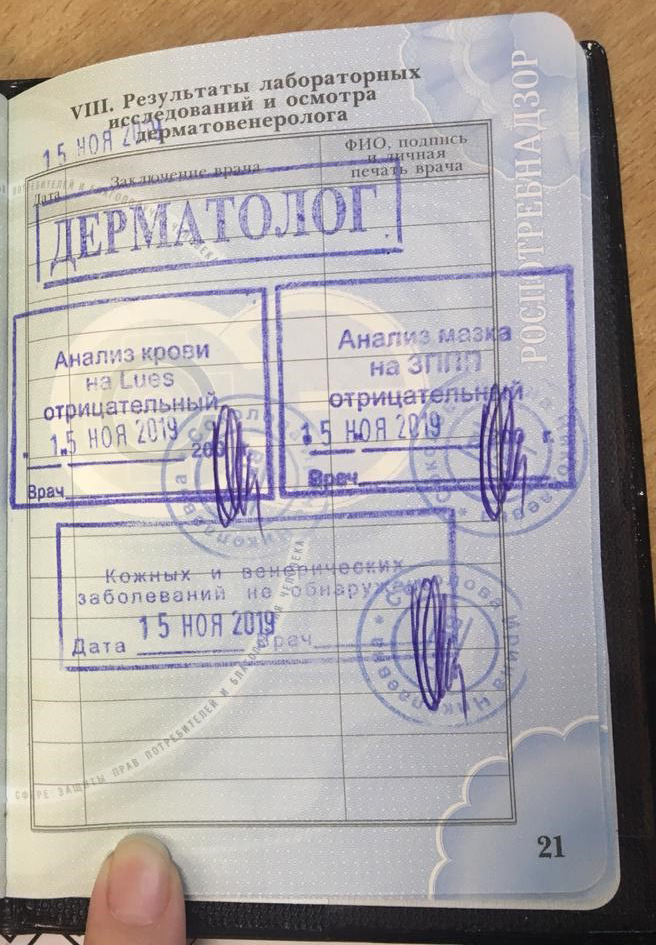 VIII. Результаты лабораторных
исследований и осмотра
дерматовенеролога
15 НОЯ 2019
Дата
Заключение врача
ФИО, подпись
и личная
печать врача
ДЕРМАТОЛОГ
Анализ крови
на Lues
отрицательный
15 НОЯ 2019 200 г.
Врач
Анализ мазка
на ЗППП
отрицательный
15 НОЯ 2019 200 г.
Врач
Кожных и венерических
заболеваний не обнаружено
Дата 15 НОЯ 2019 Врач
РОСПОТРЕБНАДЗОР
СФЕРЕ ЗАЩИТЫ ПРАВ ПОТРЕБИТЕЛЕЙ И БЛАГОПОЛУЧИЯ ЧЕЛОВЕКА
21